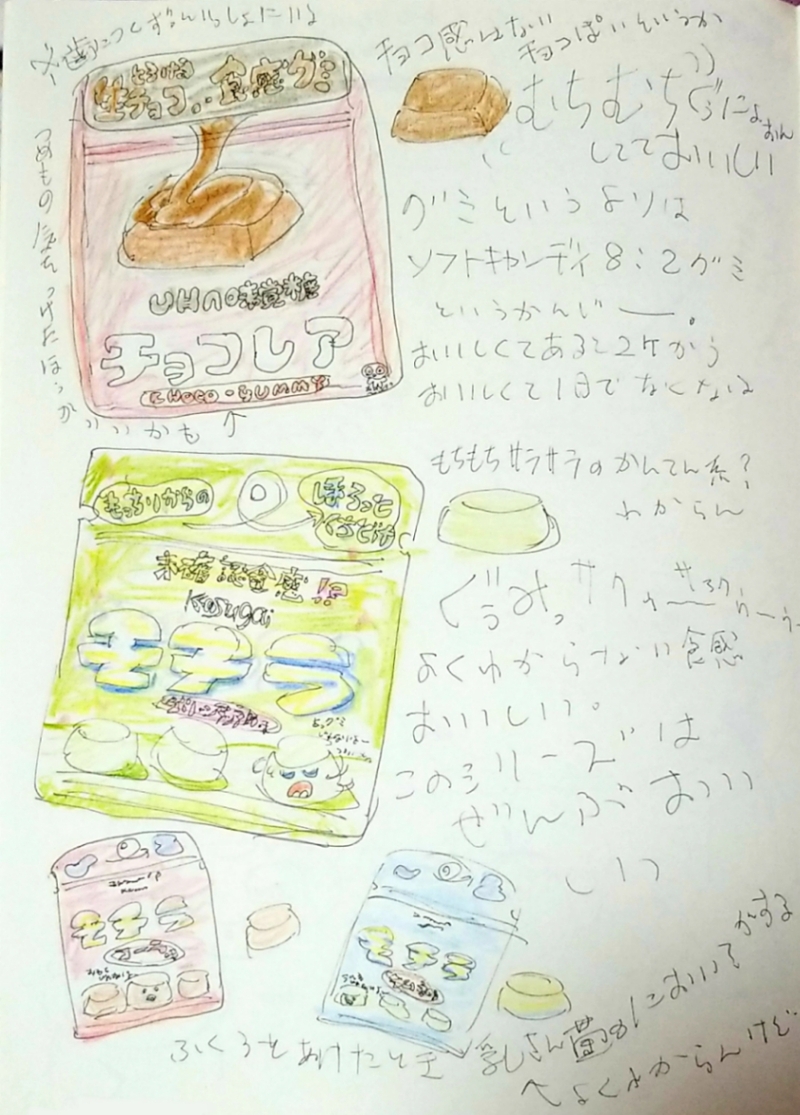 歯につくずんいっしょにいる
とろける
生チョコ 食感グミ
UHA味覚糖
チョコレア
CHOCO-GUMMY
つめもの 気をつけたほうが
いいかも
チョコ感はない
チョコっぽいというか
むちむちぐにょおん
してておいしい
グミというよりは
ソフトキャンディ8:2グミ
というかんじー。
おいしくてあると2ケかう
おいしくて1日でなくなる
もっちりからの
ほろっと
くちどけ
未確認食感!?
Kasugai
モチラ
もちもちサラサラのかんてん系?
わからん
ぐぅみっ サクッ
よくわからない食感
おいしい。
このシリーズは
ぜんぶおい
しい
モチラ
モチラ
ふくろをあけたとき 乳さん菌のにおいがする
よくわからんけど